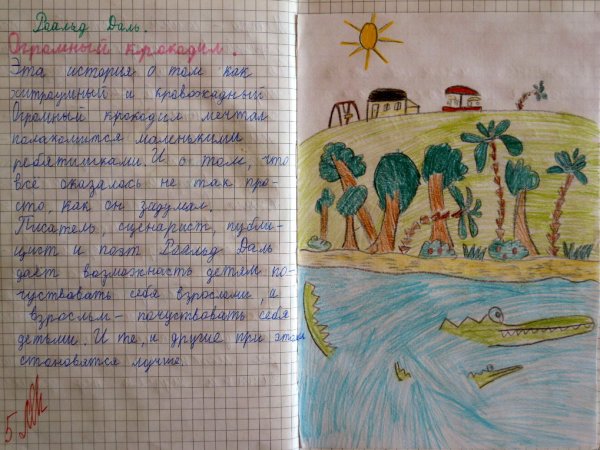 Роальд Даль.
Огромный крокодил.
Эта история о том как
хитроумный и кровожадный
Огромный крокодил мечтал
полакомится маленькими
ребятишками. И о том, что
всё оказалось не так про-
сто, как он задумал.
Писатель, сценарист, публи-
цист и поэт Роальд Даль
даёт возможность детям по-
чуствовать себя взрослыми, а
взрослым - почуствовать себя
детьми. И те, и другие при этом
становятся лучше.
5